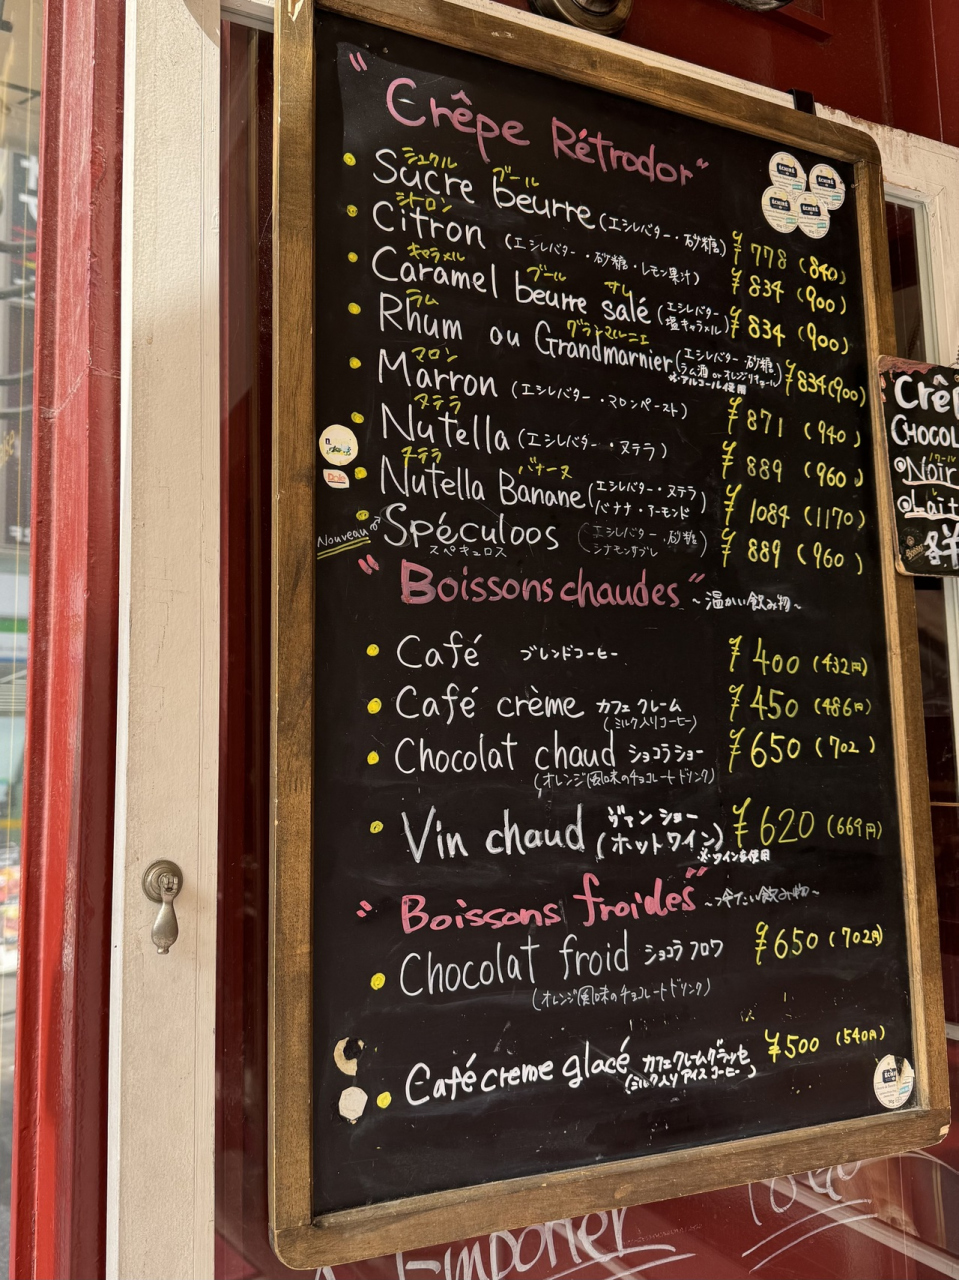 "Crêpe Rétrodor"
シュクル ブール
Sucre beurre (エシレバター・砂糖) ¥778 (840)
シトロン
Citron (エシレバター・砂糖・レモン果汁) ¥834 (900)
キャラメル ブール サレ
Caramel beurre salé (エシレバター・塩キャラメル) ¥834 (900)
ラム グランマルニエ
Rhum ou Grandmarnier (エシレバター・砂糖, ラム酒 or オレンジリキュール) ¥834 (900)
※アルコール使用
マロン
Marron (エシレバター・マロンペースト) ¥871 (940)
ヌテラ
Nutella (エシレバター・ヌテラ) ¥889 (960)
ヌテラ バナーヌ
Nutella Banane (エシレバター・ヌテラ バナナ・アーモンド) ¥1084 (1170)
Nouveau Spéculoos (エシレバター・砂糖 シナモンサブレ) ¥889 (960)
スペキュロス
"Boissons chaudes" ~温かい飲み物~
Café ブレンドコーヒー ¥400 (432円)
Café crème カフェ クレーム ¥450 (486円)
(ミルク入りコーヒー)
Chocolat chaud ショコラ ショー ¥650 (702)
(オレンジ風味のチョコレートドリンク)
Vin chaud ヴァン ショー (ホットワイン) ¥620 (669円)
※ワイン使用
"Boissons froides" ~冷たい飲み物~
Chocolat froid ショコラ フロワ ¥650 (702円)
(オレンジ風味のチョコレートドリンク)
Café creme glacé カフェクレームグラッセ ¥500 (540円)
(ミルク入りアイスコーヒー)
Crê
CHOCOL
Noir
Lait
Emporter
To Go